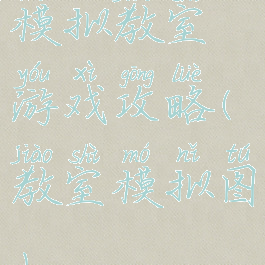 模拟教室
yóu xì gōng lüè
游戏攻略(
jiào shì mó nǐ tú
教室模拟图
)